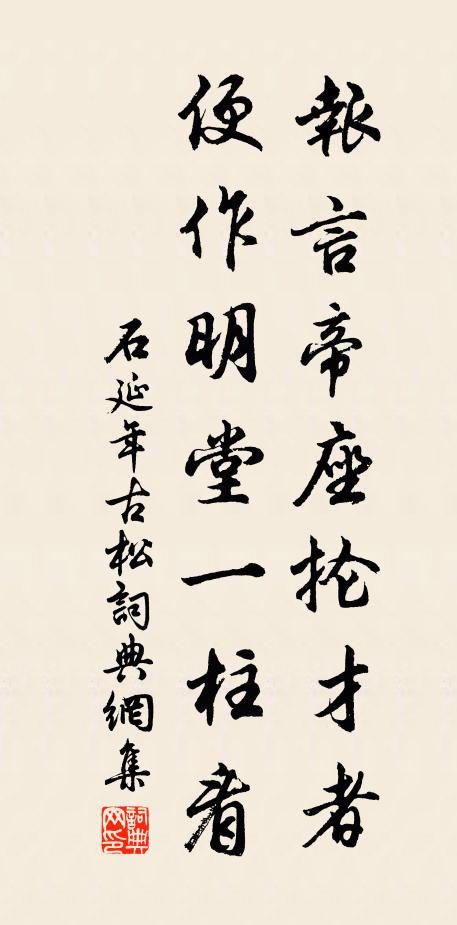 報言帝座抡才者
便作明堂一柱看
石延年古松詞典網集
詞典網印